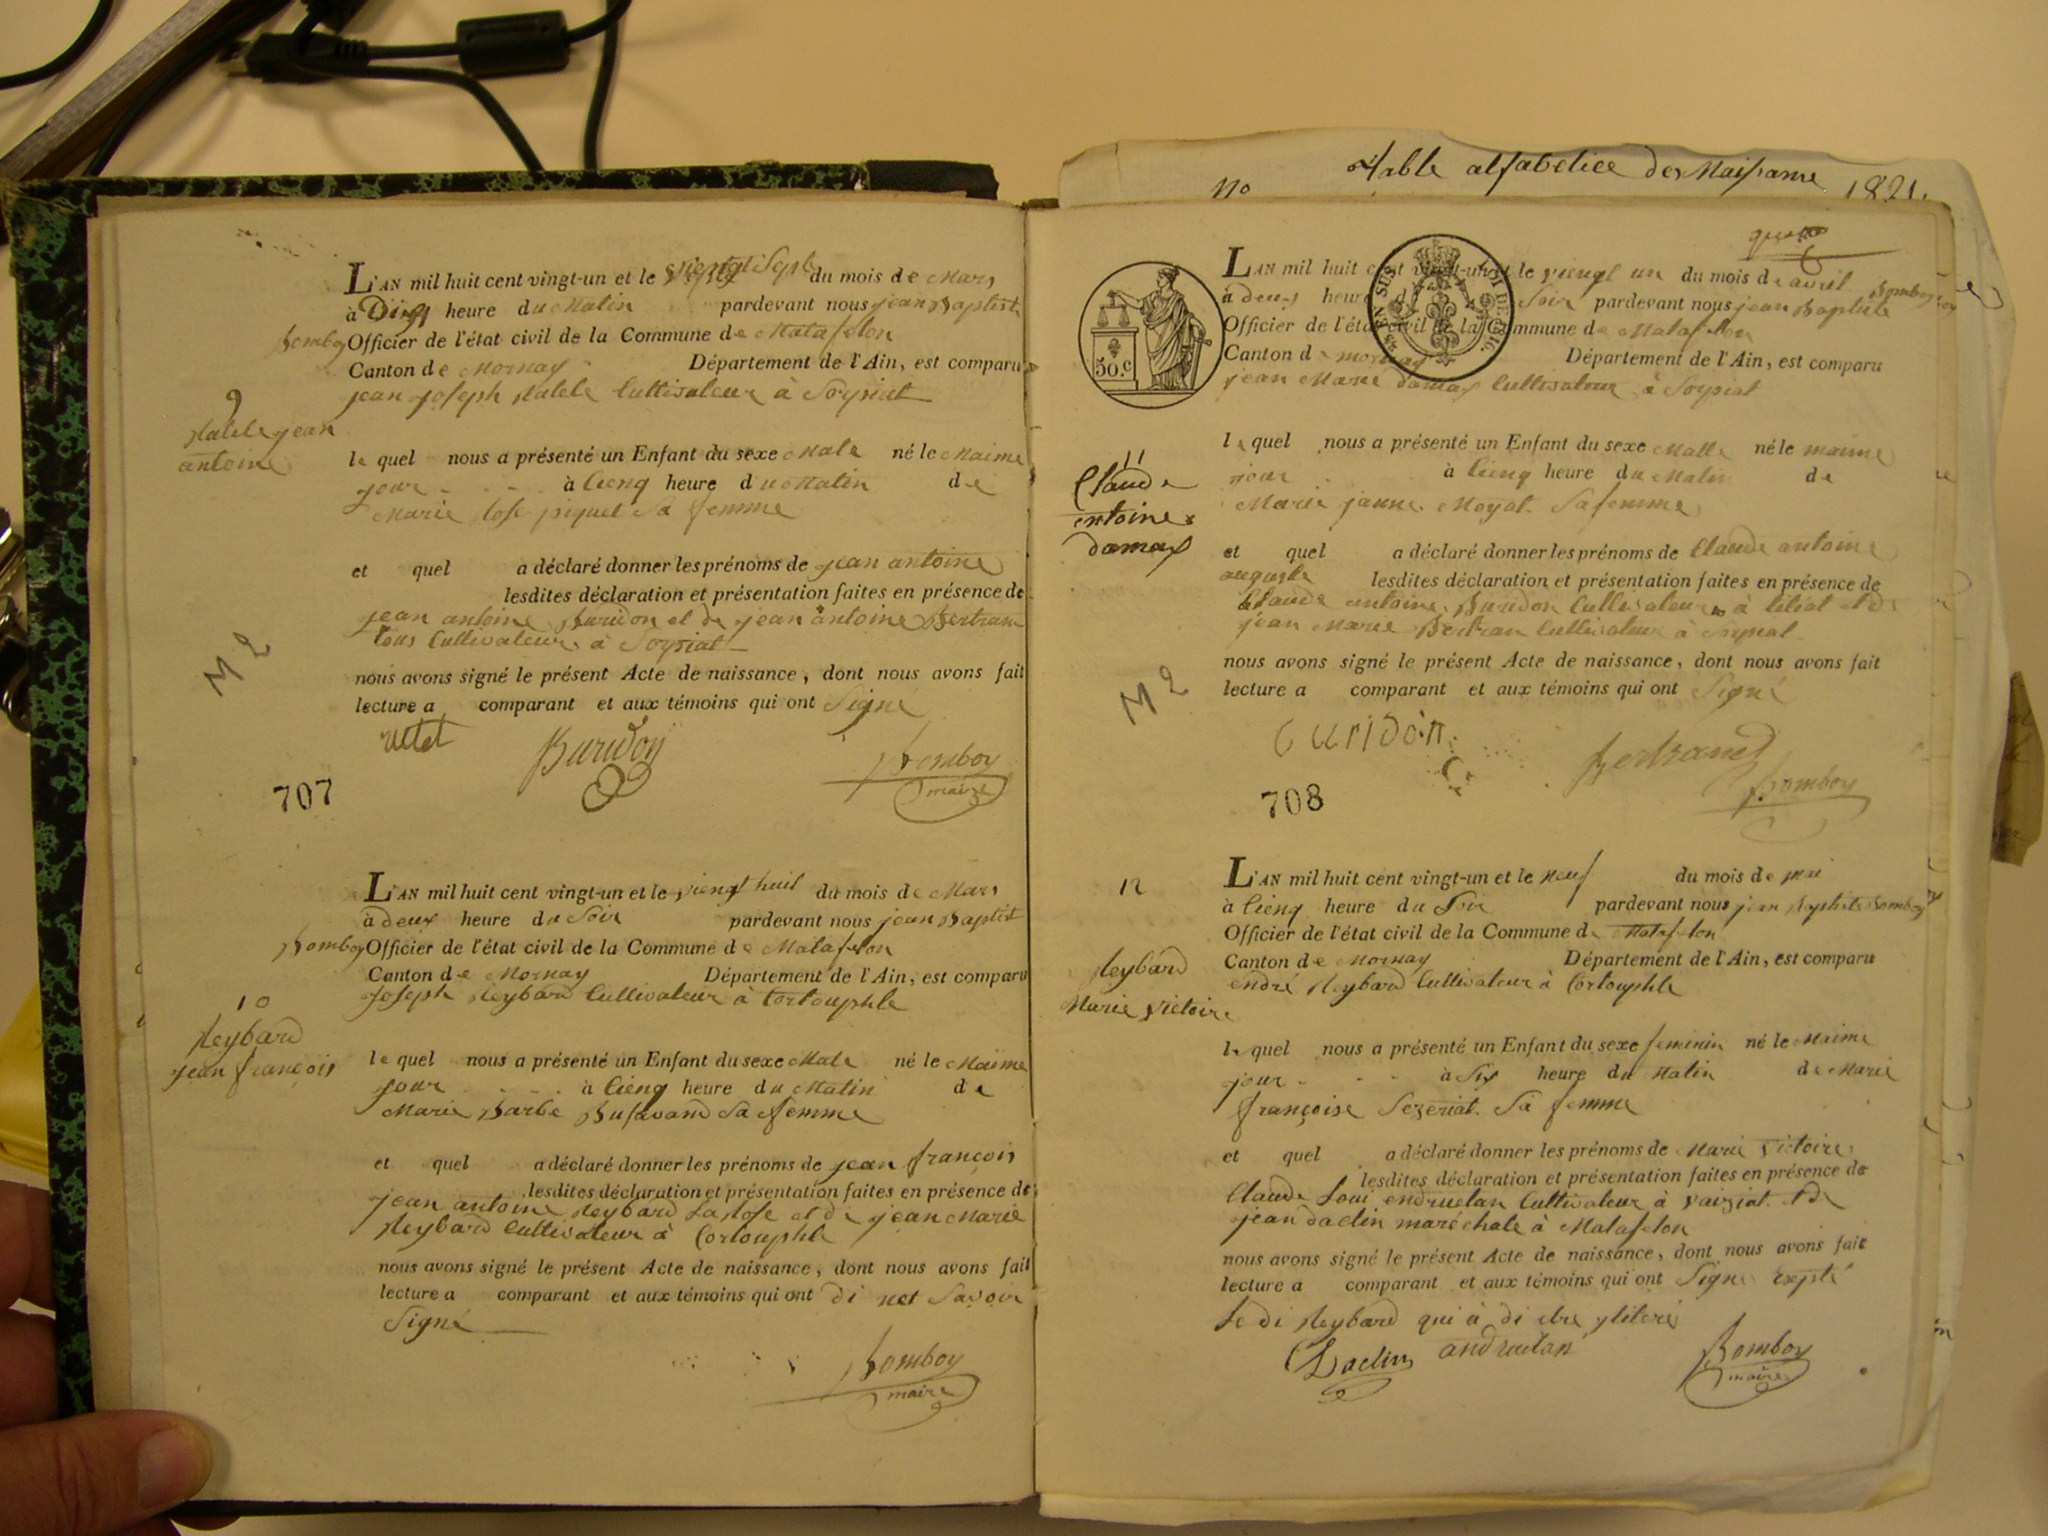 L'AN mil huit cent vingt-un et le vientgt Sept du mois de Mars
à Dix heure du Matin pardevant nous jean Baptiste
Bomboy Officier de l'état civil de la Commune de Matafelon
Canton de Mornay Département de l'Ain, est comparu
jean joseph Cultivateur à Soyriat
9
jean
antoine
le quel nous a présenté un Enfant du sexe Male né le Maime
jour à Cienq heure du Matin de
Marie Rose piquet Sa femme
et quel a déclaré donner les prénoms de jean antoine
lesdites déclaration et présentation faites en présence de
jean antoine Buridon et de jean antoine Bertrane
tous Cultivateur à Soyriat
M 2
nous avons signé le présent Acte de naissance, dont nous avons fait
lecture a comparant et aux témoins qui ont Signé
Buridon
Bomboy
maire
707
L'AN mil huit cent vingt-un et le viengt huit du mois de Mars
à deux heure du Soir pardevant nous jean Baptist
Bomboy Officier de l'état civil de la Commune de Matafelon
Canton de Mornay Département de l'Ain, est comparu
Joseph Reybard Cultivateur à Cortouphle
10
Reybard
jean françois
le quel nous a présenté un Enfant du sexe Male né le Maime
jour à Cienq heure du Matin de
Marie Barbe Bufavand Sa femme
et quel a déclaré donner les prénoms de jean françois
lesdites déclaration et présentation faites en présence de
jean antoine Reybard LaRose et de jean Marie
Reybard Cultivateur à Cortouphle
nous avons signé le présent Acte de naissance, dont nous avons fait
lecture a comparant et aux témoins qui ont di net Savoir
Signé
Bomboy
maire
Table alfabetice des Naissanse 1821.
no
50.c
L'AN mil huit cent vingt-un et le viengt un du mois de avril
à deux heure du Soir pardevant nous jean Baptiste Bomboy
Officier de l'état civil de la Commune de Matafelon
Canton de mornay Département de l'Ain, est comparu
jean Marie damax Cultivateur à Soyriat
11
Claude
entoine
damax
le quel nous a présenté un Enfant du sexe Malle né le maime
jour à Cienq heure du Matin de
Marie janne Moyat Sa femme
et quel a déclaré donner les prénoms de Claude antoine
auguste lesdites déclaration et présentation faites en présence de
Claude antoine Buridon Cultivateur à
jean Marie Bertran Cultivateur à Soyriat
M 2
nous avons signé le présent Acte de naissance, dont nous avons fait
lecture a comparant et aux témoins qui ont Signé
Buridon
Bertrand
Bomboy
708
L'AN mil huit cent vingt-un et le neuf du mois de mai
à Cienq heure du Soir pardevant nous jean Baptiste Bomboy
Officier de l'état civil de la Commune de Matafelon
Canton de Mornay Département de l'Ain, est comparu
endré Reybard Cultivateur à Cortouphle
12
Reybard
Marie victoire
le quel nous a présenté un Enfant du sexe feminin né le Maime
jour à Six heure du Matin de Marie
françoise Sezeriat Sa femme
et quel a déclaré donner les prénoms de Marie victoire
lesdites déclaration et présentation faites en présence de
Claude Loui endruetan Cultivateur à vauziat et de
jean daclin maréchale à Matafelon
nous avons signé le présent Acte de naissance, dont nous avons fait
lecture a comparant et aux témoins qui ont Signe exepté
Le di Reybard qui à di etre yliteré
Daclin
andruetan
Bomboy
maire